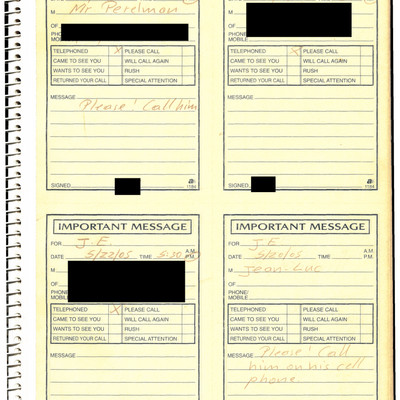 M Mr Perelman
M
OF
OF
PHONE/
MOBILE
PHONE/
MOBILE
TELEPHONED X PLEASE CALL
CAME TO SEE YOU WILL CALL AGAIN
WANTS TO SEE YOU RUSH
RETURNED YOUR CALL SPECIAL ATTENTION
TELEPHONED PLEASE CALL
CAME TO SEE YOU WILL CALL AGAIN
WANTS TO SEE YOU RUSH
RETURNED YOUR CALL SPECIAL ATTENTION
MESSAGE Please! Call him
MESSAGE
SIGNED 1184
SIGNED 1184
IMPORTANT MESSAGE
FOR J.E
DATE 5/22/05 TIME 5:20 A.M. P.M.
M
OF
PHONE/
MOBILE
TELEPHONED X PLEASE CALL
CAME TO SEE YOU WILL CALL AGAIN
WANTS TO SEE YOU RUSH
RETURNED YOUR CALL SPECIAL ATTENTION
MESSAGE
IMPORTANT MESSAGE
FOR J.E
DATE 5/20/05 TIME A.M. P.M.
M Jean-Luc
OF
PHONE/
MOBILE
TELEPHONED PLEASE CALL
CAME TO SEE YOU WILL CALL AGAIN
WANTS TO SEE YOU RUSH
RETURNED YOUR CALL SPECIAL ATTENTION
MESSAGE Please! Call
him on his cell
phone.